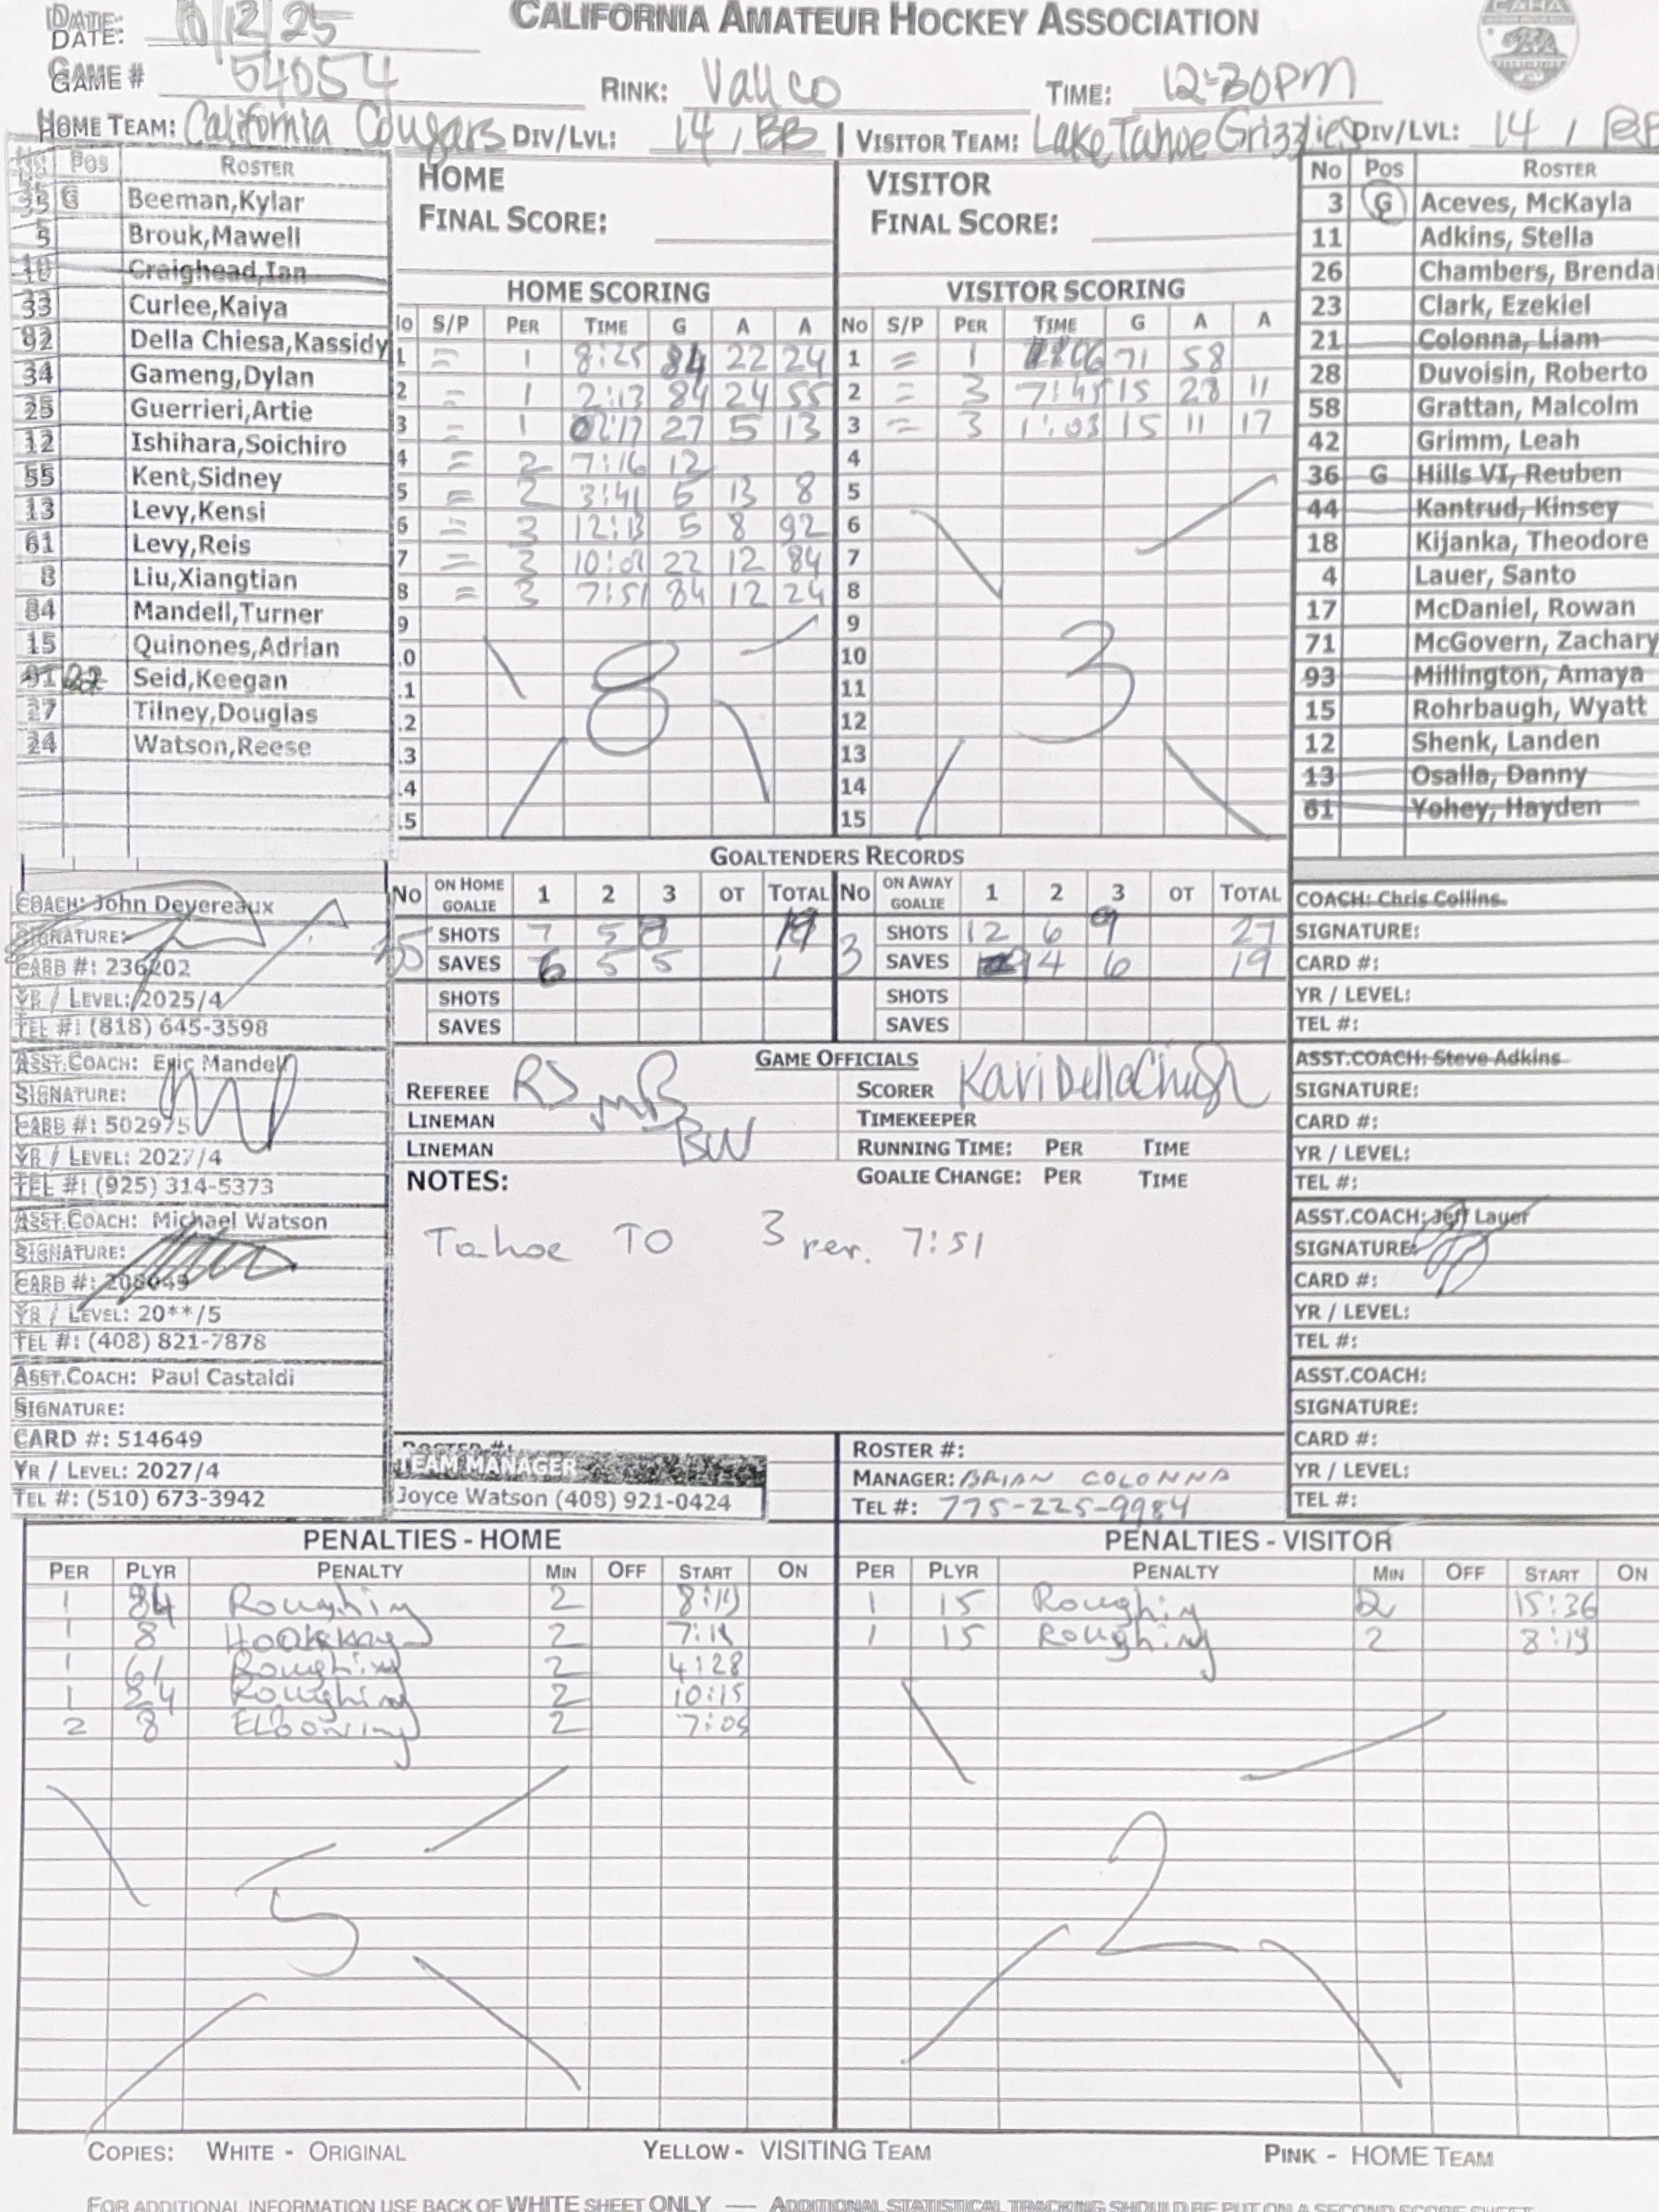 CALIFORNIA AMATEUR HOCKEY ASSOCIATION
DATE: 10/12/25
GAME # 54054 RINK: Vallco TIME: 12:30PM
HOME TEAM: California Cougars DIV/LVL: 14 / BB VISITOR TEAM: Lake Tahoe Grizzlies DIV/LVL: 14 / BB
No Pos ROSTER
35 G Beeman,Kylar
5 Brouk,Mawell
10 Craighead,Ian
33 Curlee,Kaiya
92 Della Chiesa,Kassidy
34 Gameng,Dylan
25 Guerrieri,Artie
12 Ishihara,Soichiro
55 Kent,Sidney
13 Levy,Kensi
61 Levy,Reis
8 Liu,Xiangtian
84 Mandell,Turner
15 Quinones,Adrian
91 22 Seid,Keegan
27 Tilney,Douglas
24 Watson,Reese
HOME
FINAL SCORE:
VISITOR
FINAL SCORE:
HOME SCORING
No S/P PER TIME G A A
1 = 1 8:25 84 22 24
2 = 1 2:13 84 24 55
3 = 1 27 5 13
4 = 2 7:16 12
5 = 2 3:41 5 13 8
6 = 3 12:13 5 8 92
7 = 3 10:01 22 12 84
8 = 3 7:51 84 12 24
9
10
11
12
13
14
15
8
VISITOR SCORING
No S/P PER TIME G A A
1 = 1 71 58
2 = 3 7:45 15 28 11
3 = 3 1:03 15 11 17
4
5
6
7
8
9
10
11
12
13
14
15
3
No Pos ROSTER
3 G Aceves, McKayla
11 Adkins, Stella
26 Chambers, Brenda
23 Clark, Ezekiel
21 Colonna, Liam
28 Duvoisin, Roberto
58 Grattan, Malcolm
42 Grimm, Leah
36 G Hills VI, Reuben
44 Kantrud, Kinsey
18 Kijanka, Theodore
4 Lauer, Santo
17 McDaniel, Rowan
71 McGovern, Zachary
93 Millington, Amaya
15 Rohrbaugh, Wyatt
12 Shenk, Landen
13 Osalla, Danny
61 Yohey, Hayden
GOALTENDERS RECORDS
No ON HOME GOALIE 1 2 3 OT TOTAL No ON AWAY GOALIE 1 2 3 OT TOTAL
35 SHOTS 7 5 8 3 SHOTS 12 6 9 27
SAVES 6 5 5 SAVES 9 4 6 19
SHOTS SHOTS
SAVES SAVES
COACH: John Devereaux
SIGNATURE:
CARD #: 236202
YR / LEVEL: 2025/4
TEL #: (818) 645-3598
ASST.COACH: Eric Mandell
SIGNATURE:
CARD #: 502975
YR / LEVEL: 2027/4
TEL #: (925) 314-5373
ASST.COACH: Michael Watson
SIGNATURE:
CARD #: 208049
YR / LEVEL: 20**/5
TEL #: (408) 821-7878
ASST.COACH: Paul Castaldi
SIGNATURE:
CARD #: 514649
YR / LEVEL: 2027/4
TEL #: (510) 673-3942
GAME OFFICIALS
REFEREE RS MB SCORER Kari DellaChiesa
LINEMAN TIMEKEEPER
LINEMAN BW RUNNING TIME: PER TIME
NOTES: GOALIE CHANGE: PER TIME
Tahoe TO 3 per. 7:51
COACH: Chris Collins
SIGNATURE:
CARD #:
YR / LEVEL:
TEL #:
ASST.COACH: Steve Adkins
SIGNATURE:
CARD #:
YR / LEVEL:
TEL #:
ASST.COACH: Jeff Lauer
SIGNATURE:
CARD #:
YR / LEVEL:
TEL #:
ASST.COACH:
SIGNATURE:
CARD #:
YR / LEVEL:
TEL #:
ROSTER #:
TEAM MANAGER
Joyce Watson (408) 921-0424
ROSTER #:
MANAGER: BRIAN COLONNA
TEL #: 775-225-9984
PENALTIES - HOME
PER PLYR PENALTY MIN OFF START ON
1 84 Roughing 2 8:19
1 8 Hooking 2 7:15
1 61 Roughing 2 4:28
1 Roughing 2 10:15
2 8 Elbowing 2 7:05
5
PENALTIES - VISITOR
PER PLYR PENALTY MIN OFF START ON
1 15 Roughing 2 15:36
1 15 Roughing 2 8:19
2
COPIES: WHITE - ORIGINAL YELLOW - VISITING TEAM PINK - HOME TEAM
FOR ADDITIONAL INFORMATION USE BACK OF WHITE SHEET ONLY — ADDITIONAL STATISTICAL TRACKING SHOULD BE PUT ON A SECOND SCORE SHEET